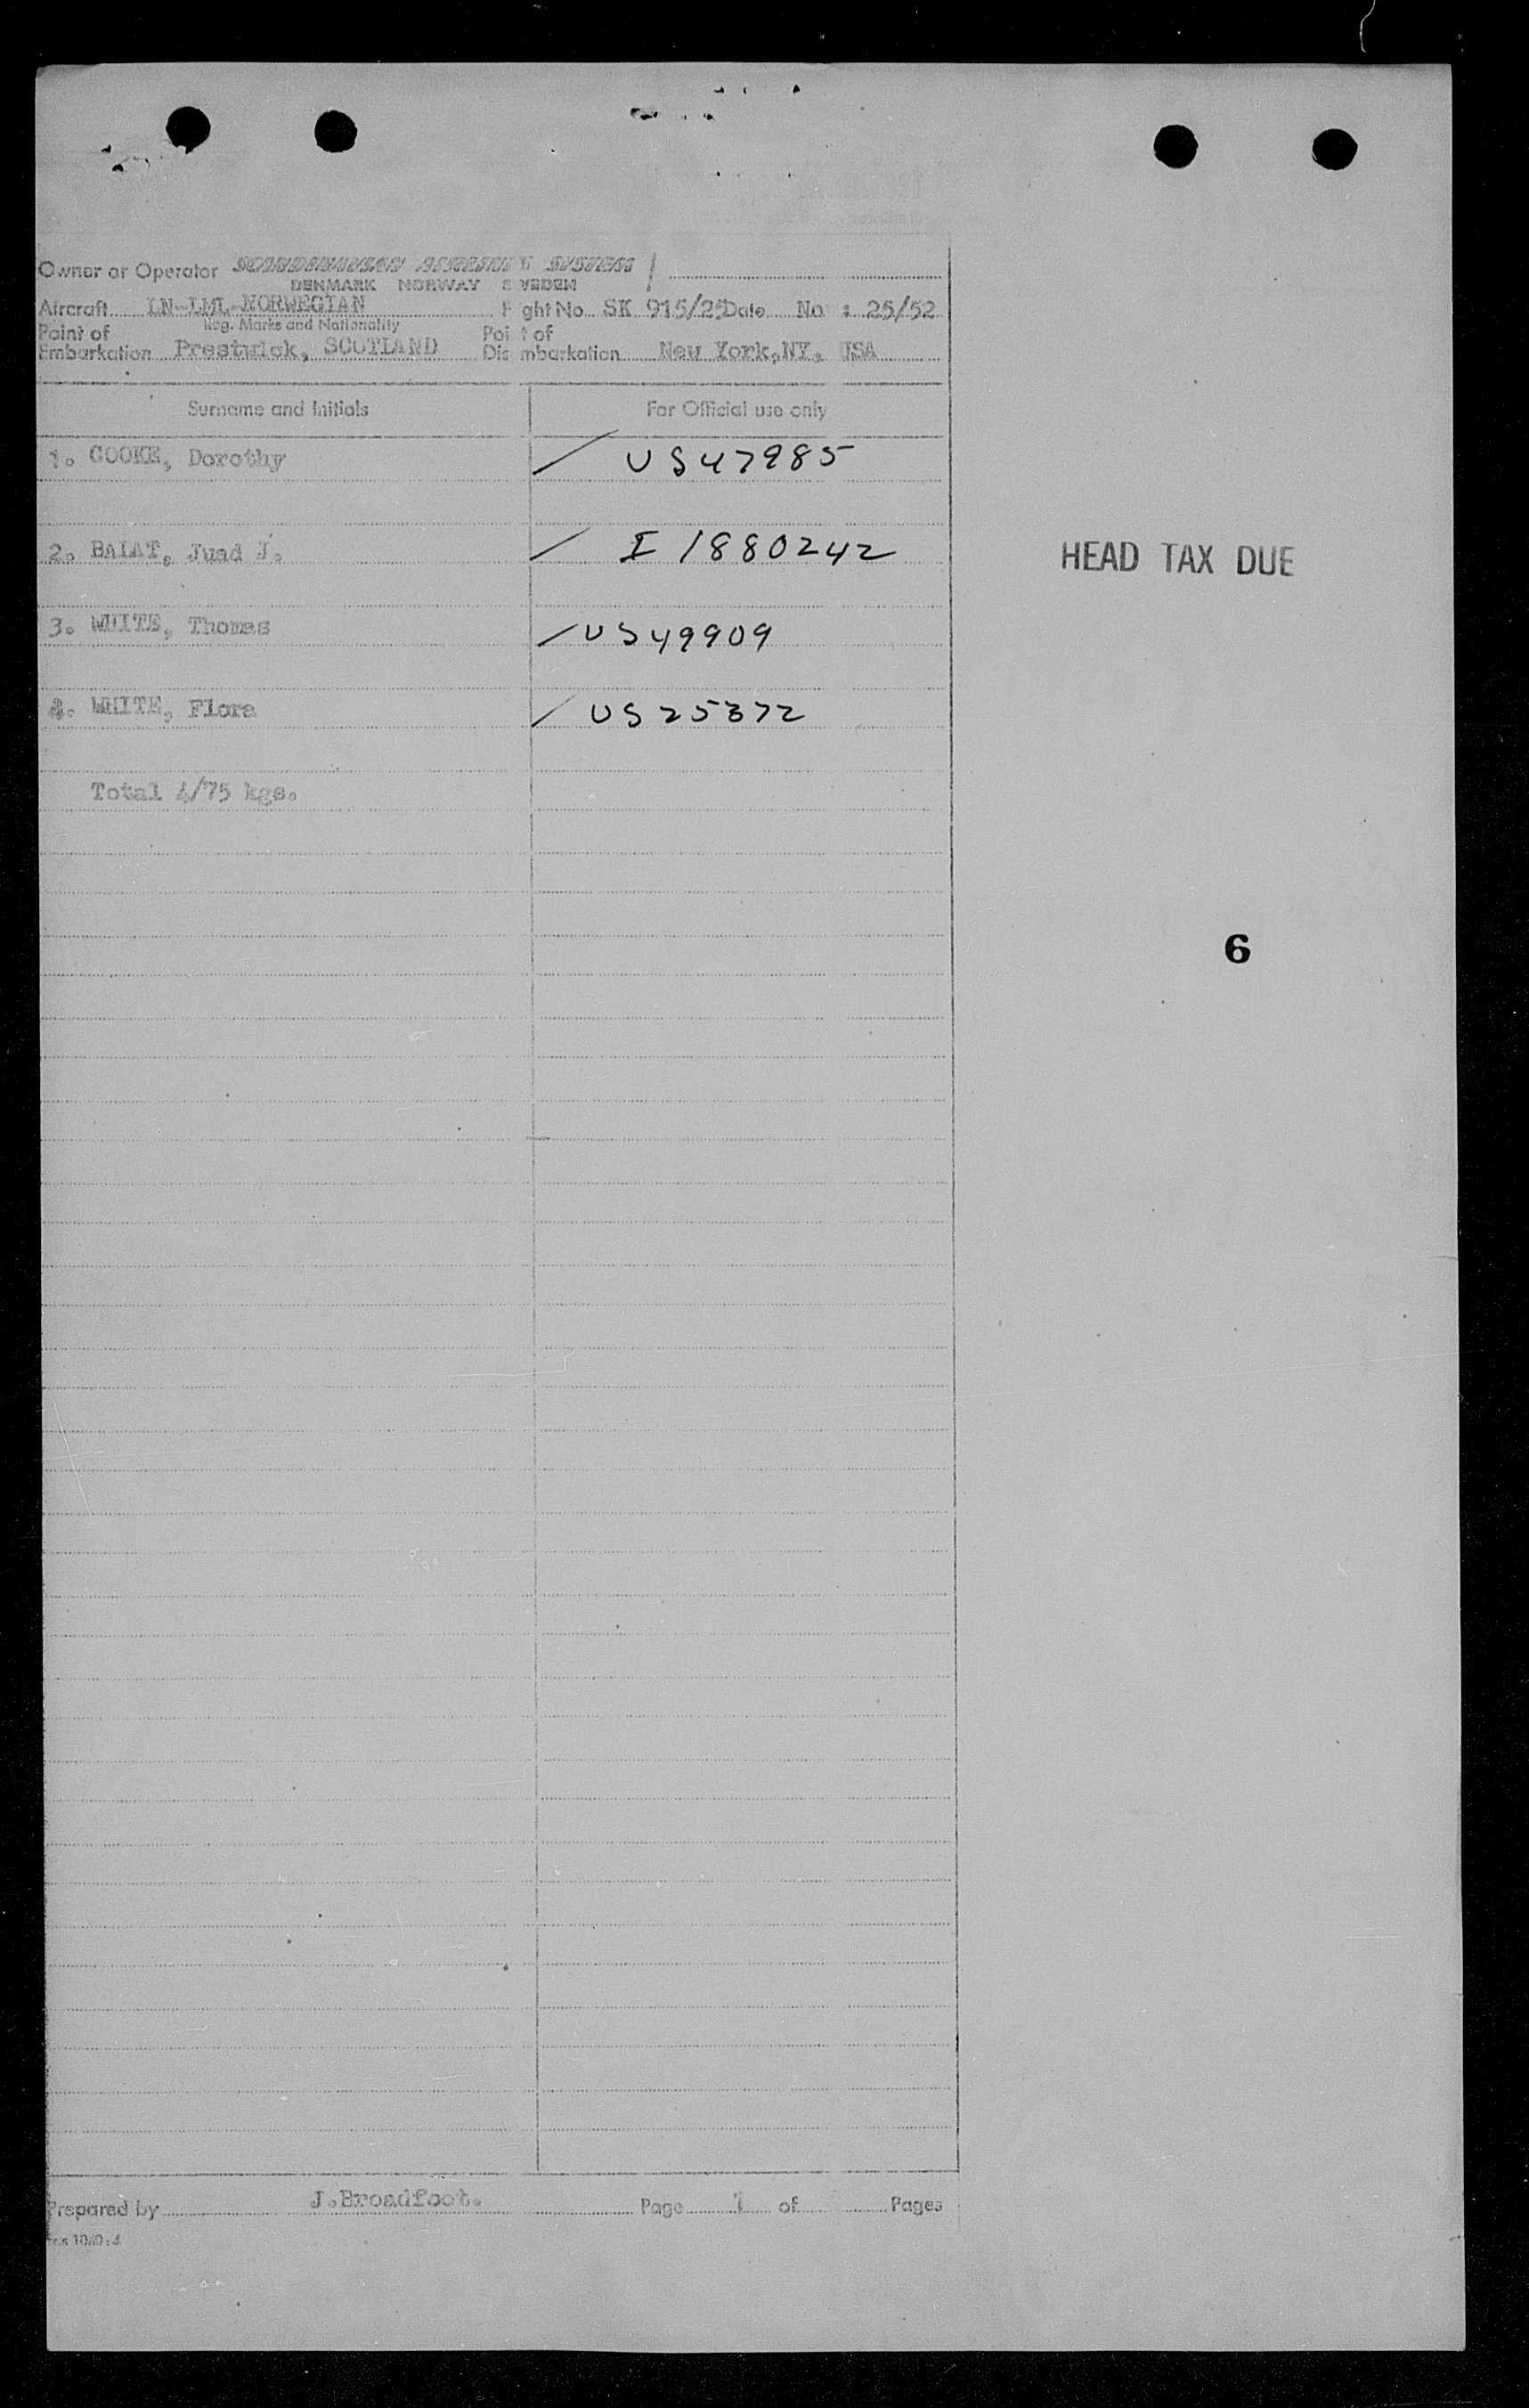 Owner or Operator SCANDINAVIAN AIRLINES SYSTEM
DENMARK NORWAY SWEDEN
Aircraft LN-LML-NORWEGIAN Flight No. SK 915/25 Date Nov. 25/52
Reg. Marks and Nationality
Point of Embarkation Prestwick, SCOTLAND Point of Disembarkation New York, NY, USA
Surname and Initials For Official use only
1. COOKE, Dorothy / US47985
2. BALAT, Juad J. / I 1880242
HEAD TAX DUE
3. WHITE, Thomas / US49909
4. WHITE, Flora / US25372
Total 4/75 kgs.
6
Prepared by J.Broadfoot. Page 1 of Pages